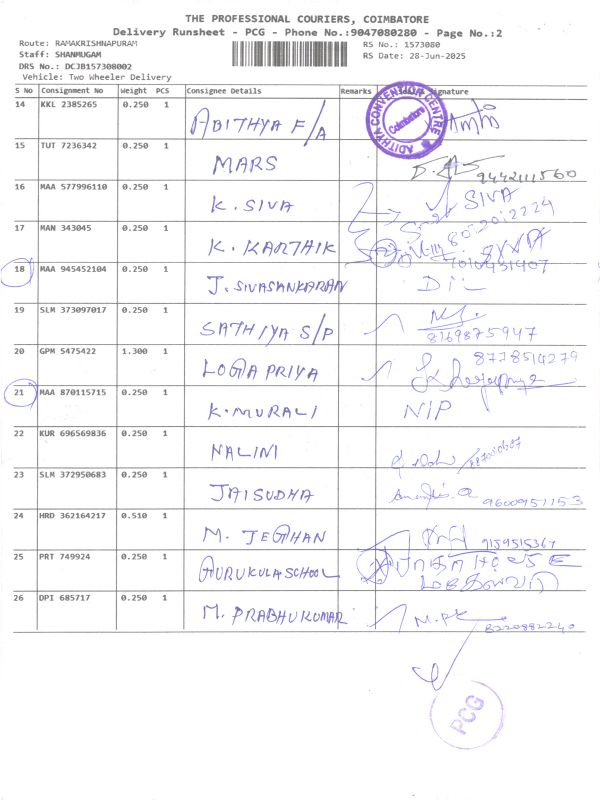 THE PROFESSIONAL COURIERS, COIMBATORE
Delivery Runsheet - PCG - Phone No.:9047080280 - Page No.:2
Route: RAMAKRISHNAPURAM
RS No.: 1573080
Staff: SHANMUGAM
RS Date: 28-Jun-2025
DRS No.: DCJB157308002
Vehicle: Two Wheeler Delivery
S No Consignment No Weight PCS Consignee Details Remarks Signature
14 KKL 2385265 0.250 1 ADITHYA F/A
ADITHYA CONVENTION CENTRE
Coimbatore
15 TUT 7236342 0.250 1 MARS 9442111560
16 MAA 577996110 0.250 1 K. SIVA SIVA
17 MAN 343045 0.250 1 K. KARTHIK
18 MAA 945452104 0.250 1 J. SIVASANKARAN D/L
19 SLM 373097017 0.250 1 SATHIYA S/P 8169875947
20 GPM 5475422 1.300 1 LOGAPRIYA 8778514279
21 MAA 870115715 0.250 1 K. MURALI NIP
22 KUR 696569836 0.250 1 NALINI
23 SLM 372950683 0.250 1 JAISUDHA 9600951153
24 HRD 362164217 0.510 1 M. JEGHAN 9159515367
25 PRT 749924 0.250 1 GURUKULA SCHOOL
26 DPI 685717 0.250 1 M. PRABHUKUMAR M.PK 8220882240
PCG